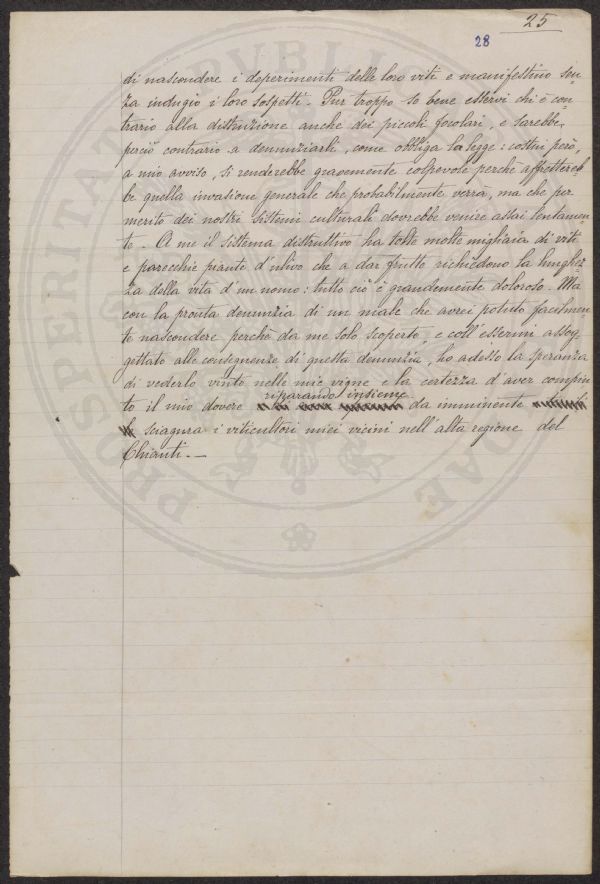 25
28
di nascondere i deperimenti delle loro viti e manifestino sen-
za indugio i loro sospetti. Pur troppo so bene esservi chi è con-
trario alla distruzione anche dei piccoli focolari, e sarebbe
perciò contrario a denunziarli, come obbliga la legge: costui però,
a mio avviso, si renderebbe gravemente colpevole perchè affrettereb-
be quella invasione generale che probabilmente verrà, ma che per
merito dei nostri sistemi culturali dovrebbe venire assai lentamen-
te. A me il sistema distruttivo ha tolte molte migliaia di viti
e parecchie piante d'ulivo che a dar frutto richiedono la lunghez-
za della vita d'un uomo: tutto ciò è grandemente doloroso. Ma
con la pronta denunzia di un male che avrei potuto facilmen-
te nascondere perchè da me solo scoperto, e coll'essermi assog-
gettato alle conseguenze di questa denunzia, ho adesso la speranza
di vederlo vinto nelle mie vigne e la certezza d'aver compiu-
to il mio dovere riparando insieme da imminente
sciagura i viticultori miei vicini nell'alta regione del
Chianti.
PROSPERITATI PVBLICAE